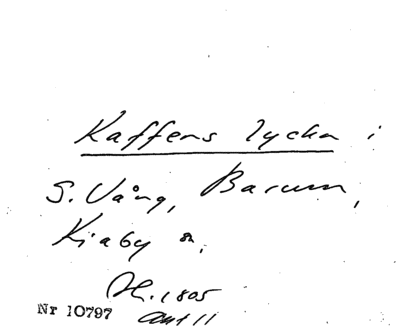 Kaffens lycka i
S. Vång, Barum,
Kiaby sn.
Jh. 1805
Nr 10797 ant 11